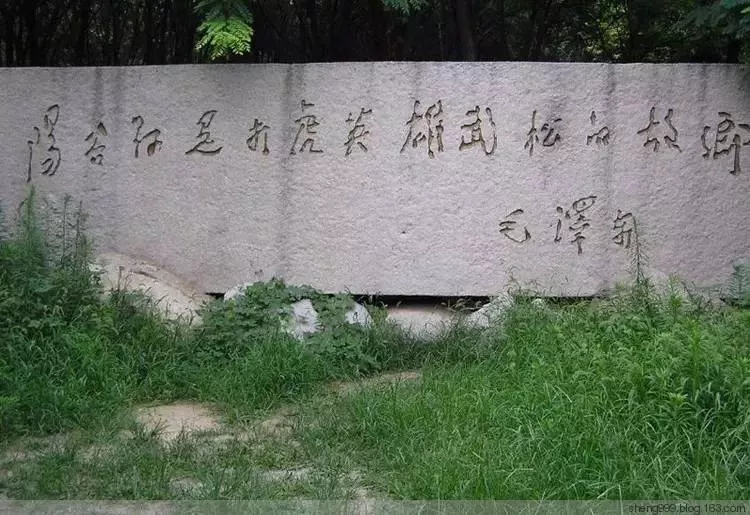 陽谷好是打虎英雄武松的故鄉
毛澤東
sheng999.blog.163.com